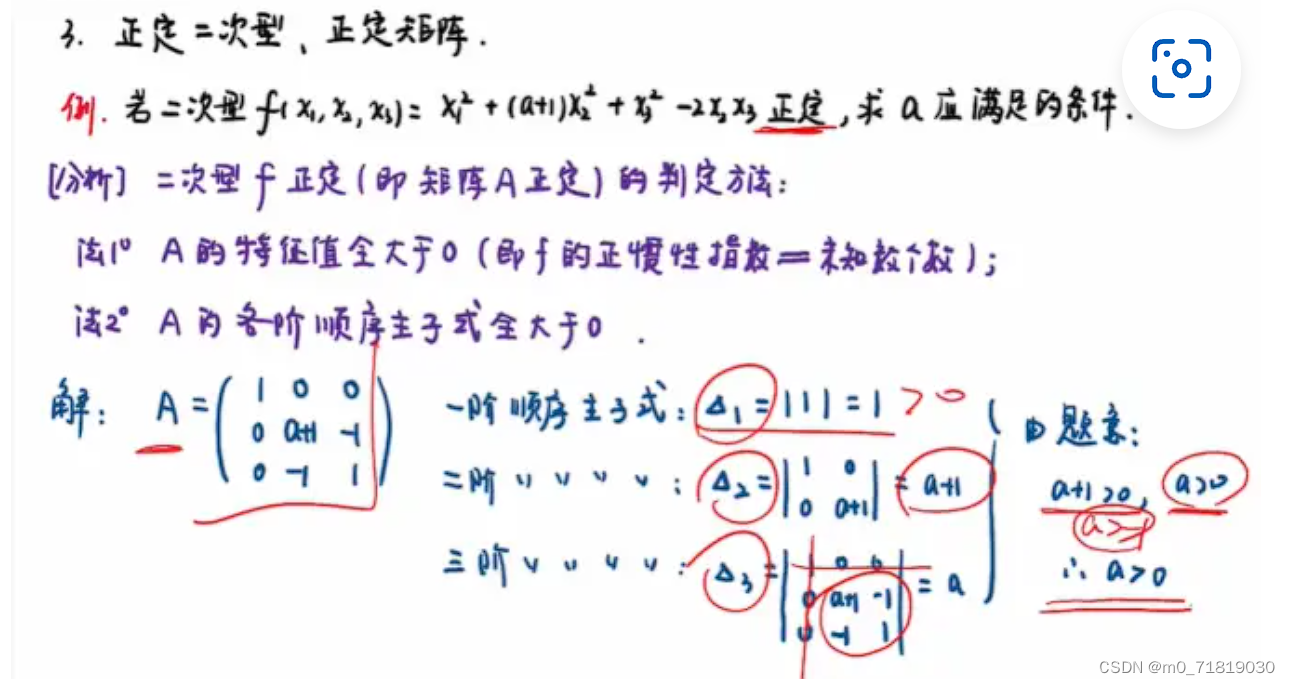 3. 正定二次型、正定矩阵.
例. 若二次型 f(x₁,x₂,x₃)= x₁² + (a+1)x₂² + x₃² -2x₂x₃ 正定, 求 a 应满足的条件.
[分析] 二次型 f 正定(即矩阵A正定)的判定方法:
法1° A的特征值全大于0 (即f的正惯性指数=未知数个数);
法2° A的各阶顺序主子式全大于0.
解: A = ( 1 0 0
0 a+1 -1
0 -1 1 )
一阶顺序主子式: Δ₁ = |1| = 1 >0
二阶 〃 〃 〃 〃 : Δ₂ = | 1 0
0 a+1 | = a+1
三阶 〃 〃 〃 〃 : Δ₃ = | 1 0 0
0 a+1 -1
0 -1 1 | = a
由题意:
a+1>0, a>0
a>-1
∴ a>0
CSDN @m0_71819030